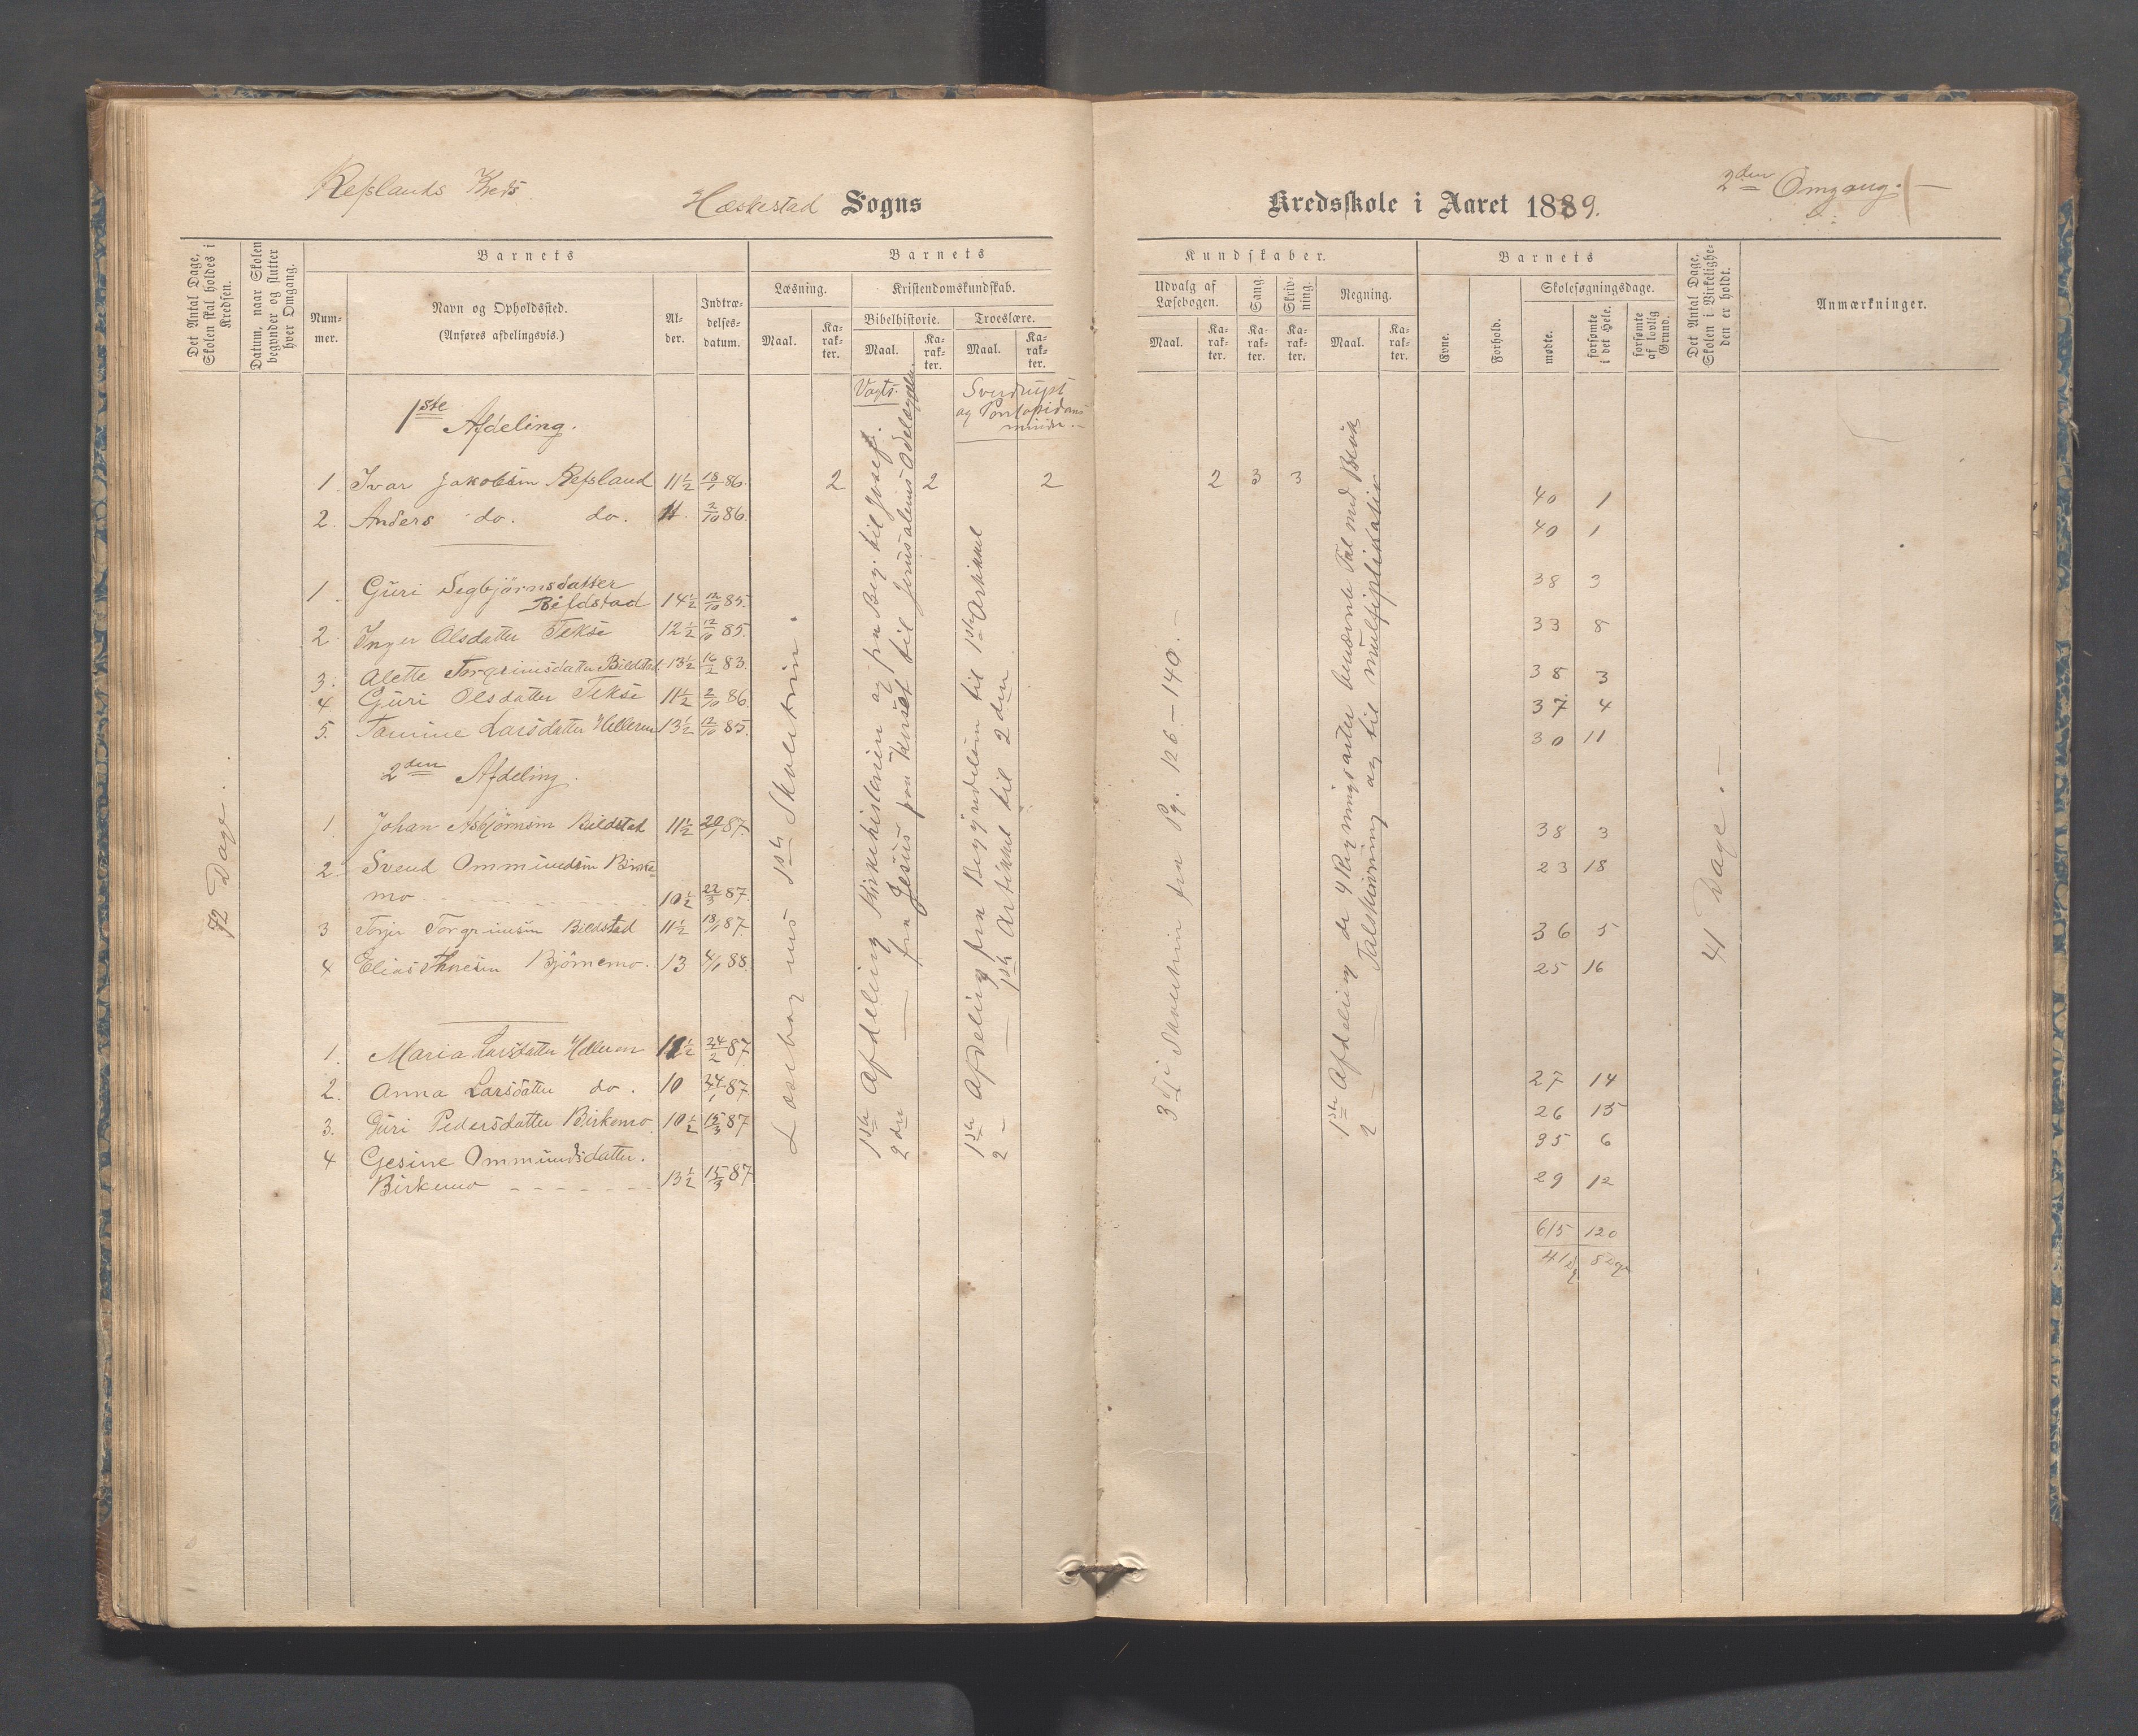 Refslands Kreds
Hæskestad Sogns
Kredsskole i Aaret 1889.
2den Omgang.
Det Antal Dage, Skolen skal holdes i Kredsen.
Datum, naar Skolen begynder og slutter hver Omgang.
Barnets
Barnets
Kundskaber.
Barnets
Det Antal Dage, Skolen i Virkeligheden er holdt.
Anmærkninger.
Nummer.
Navn og Opholdssted.
(Anføres afdelingsvis.)
Alder.
Indtrædelsesdatum.
Læsning.
Kristendomskundskab.
Bibelhistorie.
Troeslære.
Maal.
Karakter.
Maal.
Karakter.
Maal.
Karakter.
Udvalg af Læsebogen.
Sang.
Skrivning.
Regning.
Maal.
Karakter.
Karakter.
Karakter.
Maal.
Karakter.
Evne.
Forhold.
Skolesøgningsdage.
mødte.
forsømte i det Hele.
forsømte af lovlig Grund.
Vogts.
Sverdrups
og Pontopidans
mindre.
1ste Afdeling.
1. Ivar Jakobsen Refsland 11½ 18/1 86. 2 2 2 2 3 3 40 1
2. Anders do. do. 11. 2/10 86. 40 1
1. Guri Segbjörnsdatter
Bildstad 14½ 12/10 85. 38 3
2. Inger Olsdatter Tekse 12½ 12/10 85. 33 8
3. Alette Torgrimsdatter Bildstad 13½ 16/2 83. 38 3
4 Guri Olsdatter Tekse 11½ 2/10 86 37 4
5. Tomine Larsdatter Helleren 13½ 12/10 85. 30 11
2den Afdeling.
1. Johan Asbjörnsen Bildstad 11½ 20/1 87. 38 3
2. Svend Ommundsen Birke-
mo 10½ 22/3 87. 23 18
3 Torjer Torgrimsen Bildstad 11½ 18/1 87. 36 5
4 Elias Thoresen Björnemo. 13 4/1 88. 25 16
1. Maria Larsdatter Helleren 11½ 24/2 87. 27 14
2. Anna Larsdatter do. 10 24/1 87 26 15
3. Guri Pedersdatter Birkemo. 10½ 15/3 87 35 6
4 Gesine Ommundsdatter.
Birkemo 13½ 15/3 87 29 12
615 120
41 8
72 Dage.
Læsebog med 1ste Skoletrin.
1ste Afdeling Kirkehistorien og fra Beg. til Josef.
2den — fra Jesus til Jerusalems Ødelæggelse.
1ste Afdeling fra Begyndelsen til 1ste Artikkel
2 — 1ste Artikkel til 2den
3die Skoletrin fra Pg. 126 – 140. –
1ste Afdeling de 4 Regningsarter benævnte Tal med Brøk
2 — Talskrivning og til multiplikation
41 Dage. –